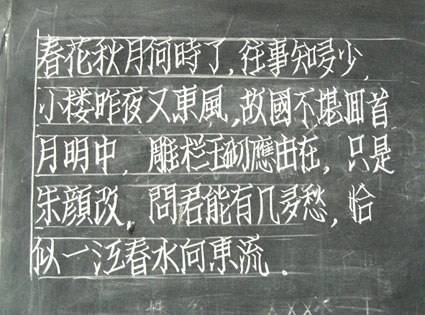 春花秋月何時了,往事知多少,
小楼昨夜又東風,故國不堪回首
月明中,雕栏玉砌應由在,只是
朱顔改,問君能有几多愁,恰
似一江春水向東流.